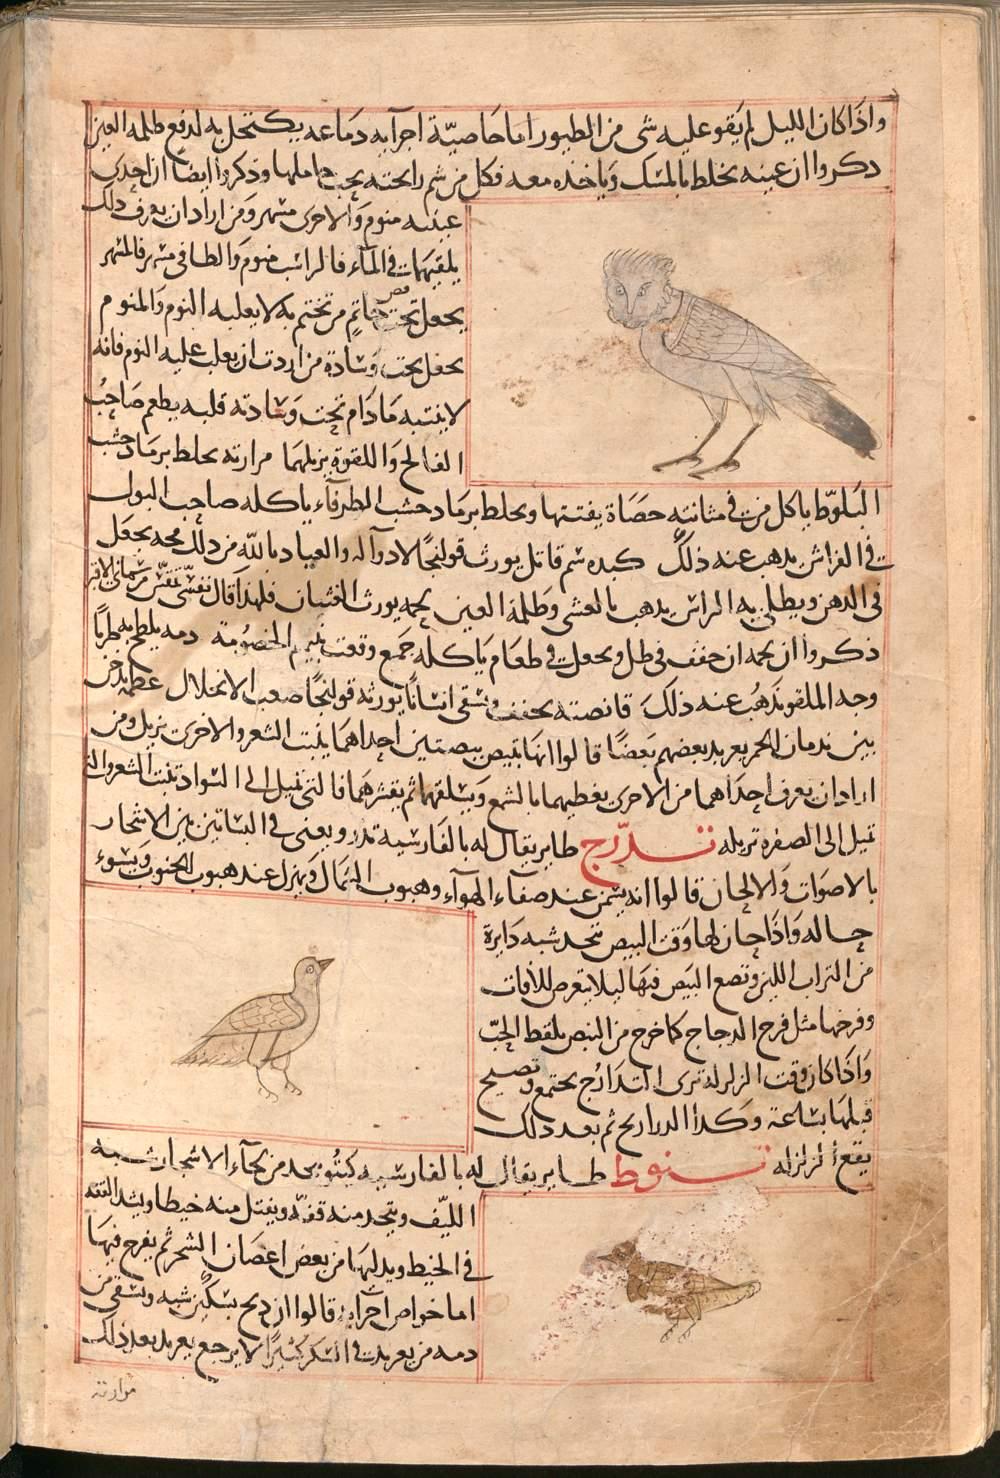 واذا كان الليل لم يقو عليه شى من الطيور اما خاصية اجزآيه دماغه يكتحل به لدفع ظلمة العين
ذكروا ان عينه يخلط بالمسك وياخذه معه فكل من شم رايحته يحب حاملها وذكروا ايضا ان احدى
عينيه منوم والاخرى مسهر ومن اراد ان يعرف ذلك
يلقيهما فى المآء فالراسب منوم والطافى مسهر فالمسهر
يجعل تحت فص خاتم من تختم به لا يغلبه النوم والمنوم
يجعل تحت وسادة من اردت ان يغلب عليه النوم فانه
لا ينتبه مادام تحت وسادته قلبه يطعم صاحب
الفالج واللقوة يزيلهما مرارته يخلط برماد خشب
البلوط ياكل من فى مثانته حصاة يفتتها ويخلط برماد خشب الطرفآء ياكله صاحب البول
فى الفراش يذهب عنه ذلك كبده سم قاتل يورث قولنجا لا دوآ له والعياذ بالله من ذلك مخه يجعل
فى الدهن ويطلى به الراس يذهب بالعشى وظلمة العين لحمه يورث الغثيان فلهذا قال
ذكروا ان لحمه ان جفف فى ظل ويجعل فى طعام ياكله جمع وقعت بينهم الخصومة دمه يلطخ به طريا
وجه الملقو يذهب عنه ذلك قانصته يجفف ويسقى انسانا يورثه قولنجا صعب الانحلال عظمه يدخن
بين ندمان الخمر يعربد بعضهم بعضا قالوا انها تبيض بيضتين احداهما ينبت الشعر والاخرى يزيل ومن
اراد ان يعرف احداهما من الاخرى يغطيهما بالشمع ويسلقهما ثم يقشرهما فالتى تميل الى السواد تنبت الشعر والتى
تميل الى الصفرة تزيله تدرّج طاير يقال له بالفارسية تدرو يغنى فى البساتين بين الاشجار
بالاصوات والالحان قالوا انه يسمن عند صفآء الهوآء وهبوب الشمال ويهزل عند هبوب الجنوب ويسوء
حاله واذا حان لها وقت البيض تتخذ شبه دايرة
من التراب اللين وتضع البيض فيها ليلا يتعرض للآفات
وفرخها مثل فرخ الدجاج كما خرج من البيض يلقط الحب
واذا كان وقت الزلزلة ترى التدارج يجتمع وتصيح
قبلها بساعة وكذا الدراريج ثم بعد ذلك
يقع الزلزله تنوط طاير يقال له بالفارسيه كيتو يتخذ من لحآء الاشجار شبه
الليف ويتخذ منه قفة ويفتل منه خيطا ويشد القفه
فى الخيط ويدليها من بعض اغصان الشجر ثم يفرخ فيها
اما خواص اجزايه قالوا ان ذبح بسكين شبه ويسقى من
دمه من يعربد فى السكر كثيرا لا يرجع يعربد بعد ذلك
مرارته